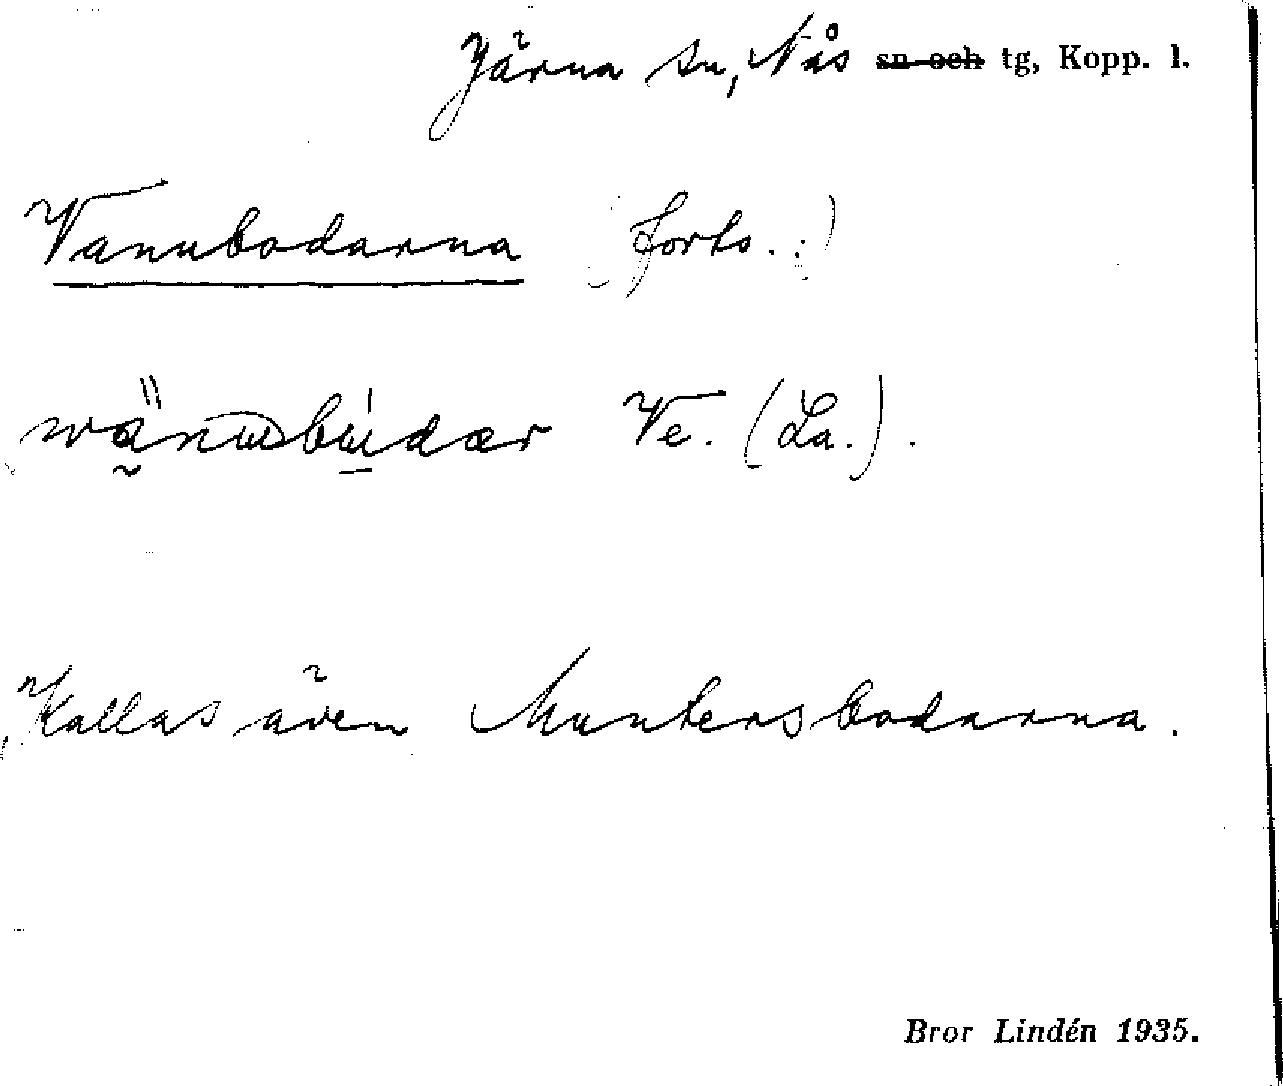 Järna sn, Nås sn och tg, Kopp. l.
Vannbodarna (forts.:)
Ve. (La.).
Kallas även Muntersbodarna.
Bror Lindén 1935.